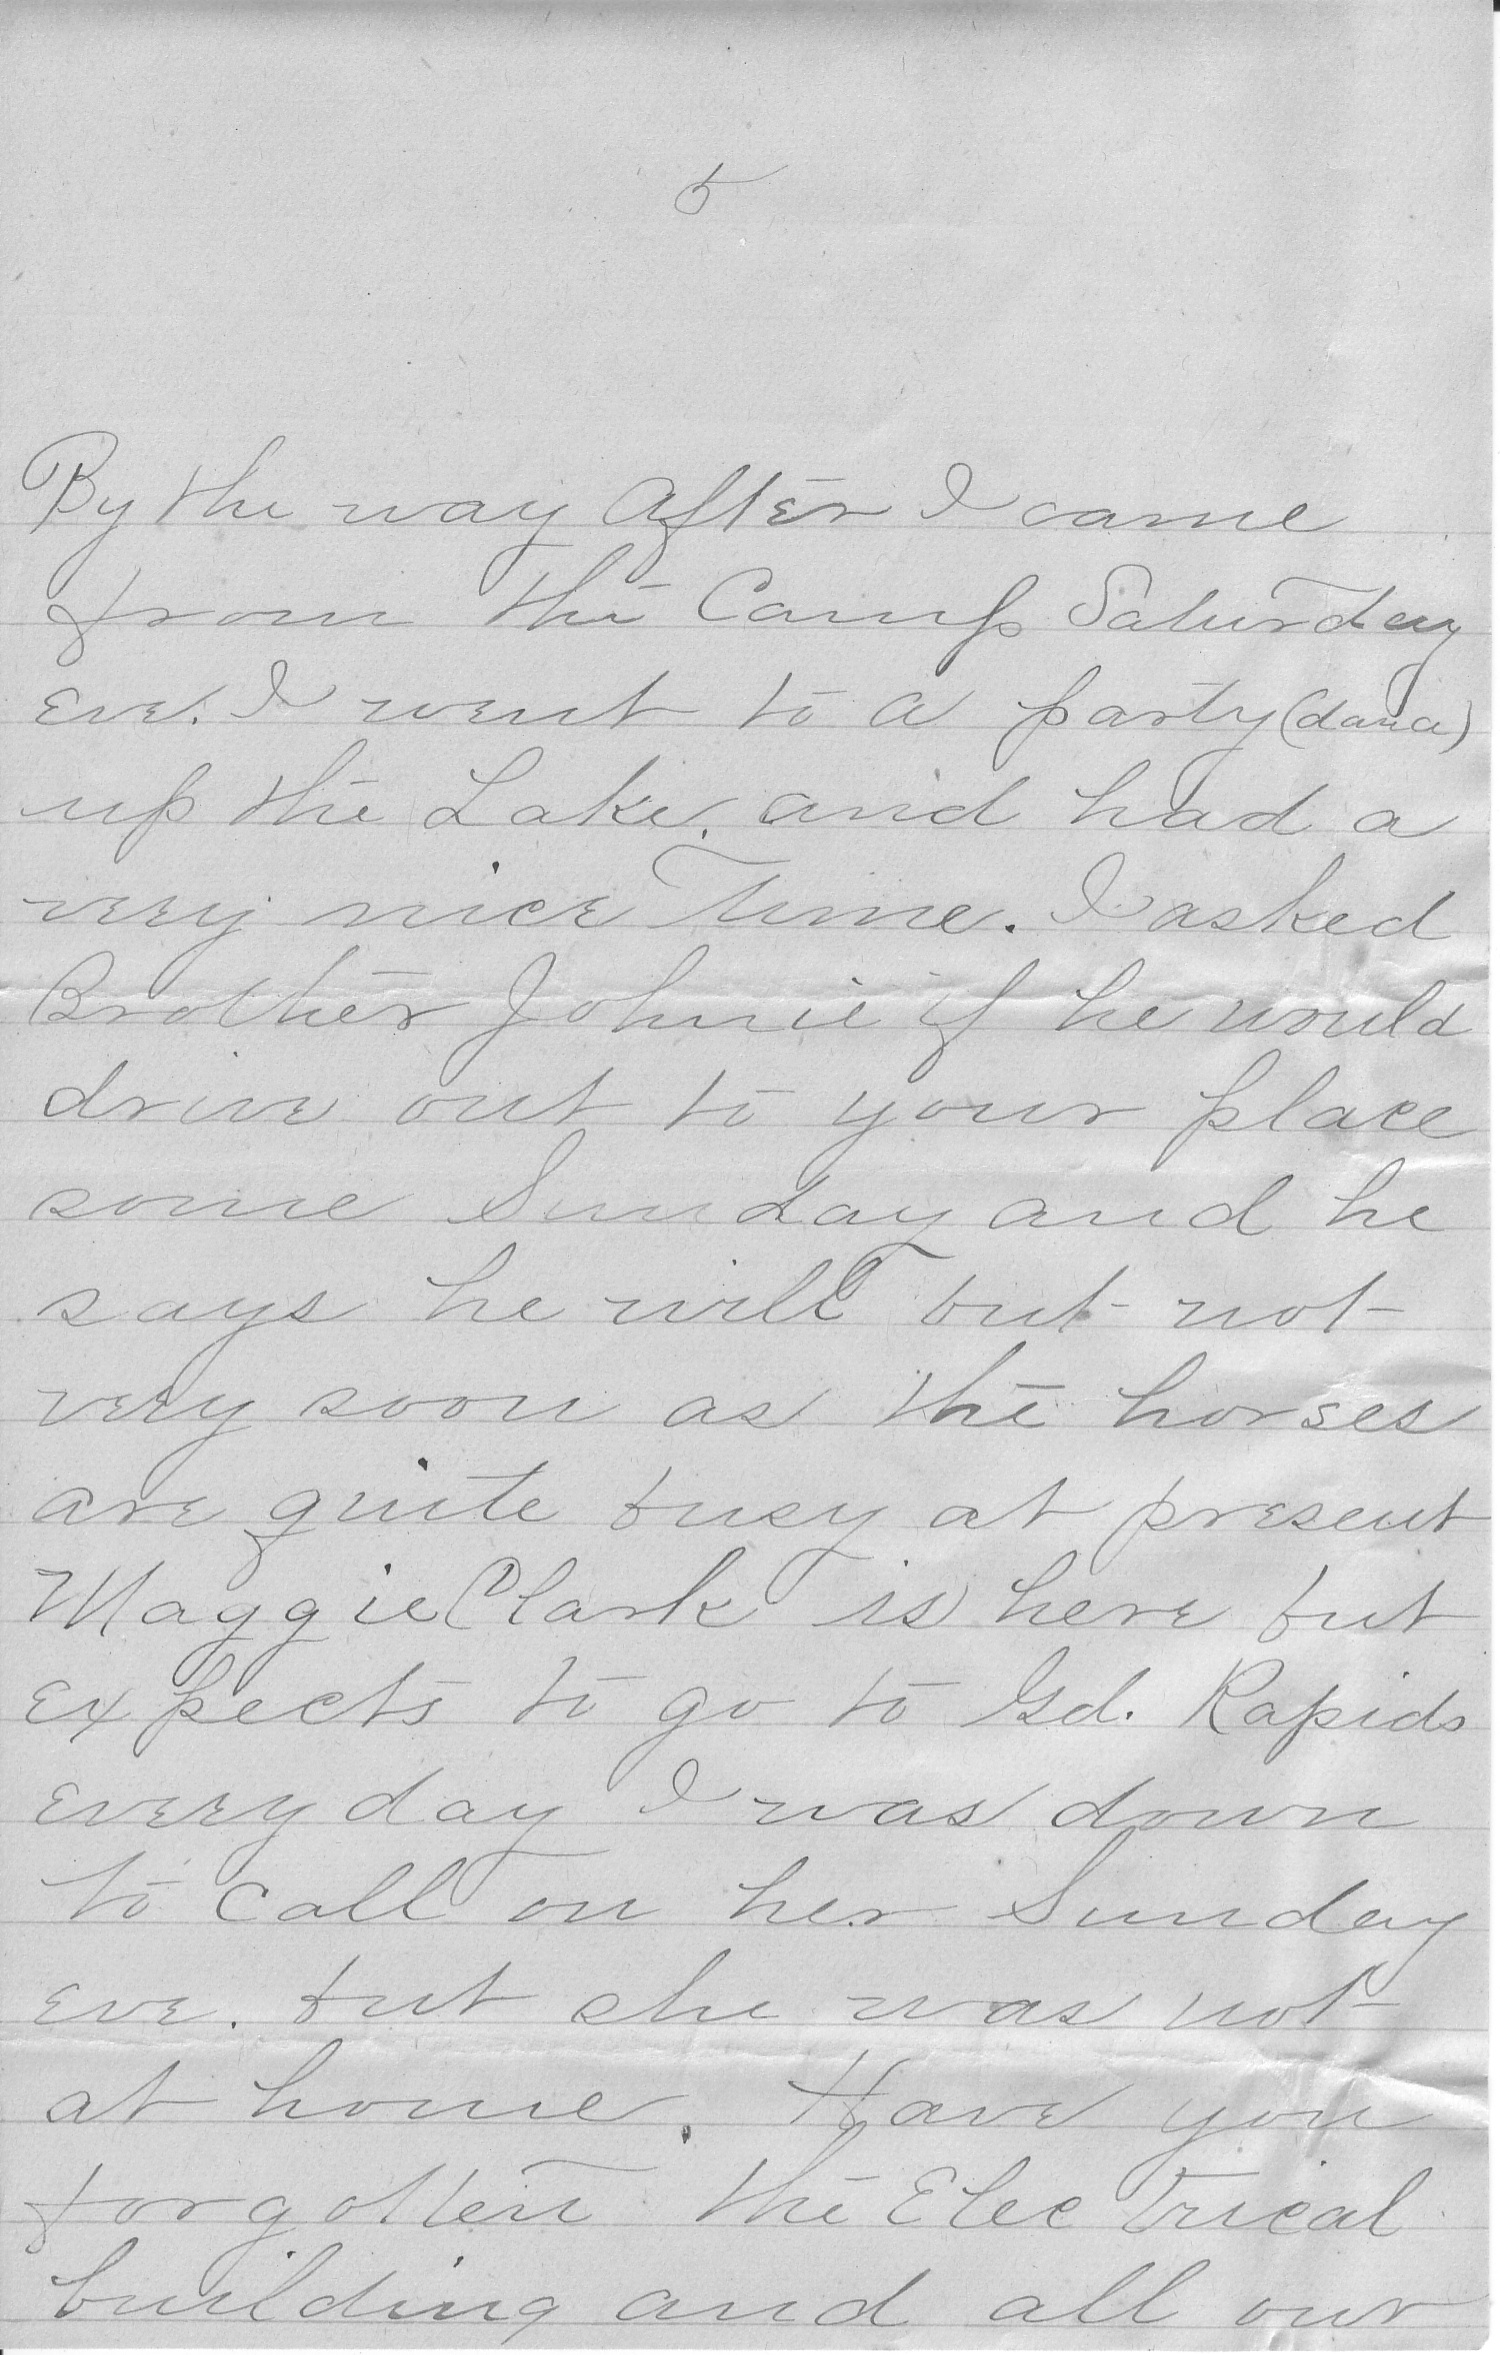 5
By the way After I came
from the Camp Saturday
eve. I went to a party (dance)
up the Lake. and had a
very nice Time. I asked
Brother Johnie if he would
drive out to your place
some Sunday and he
says he will but not
very soon as the horses
are quite busy at present
Maggie Clark is here but
expects to go to Gd. Rapids
every day I was down
to call on her Sunday
eve. but she was not
at home. Have you
forgotten the Electrical
building and all our